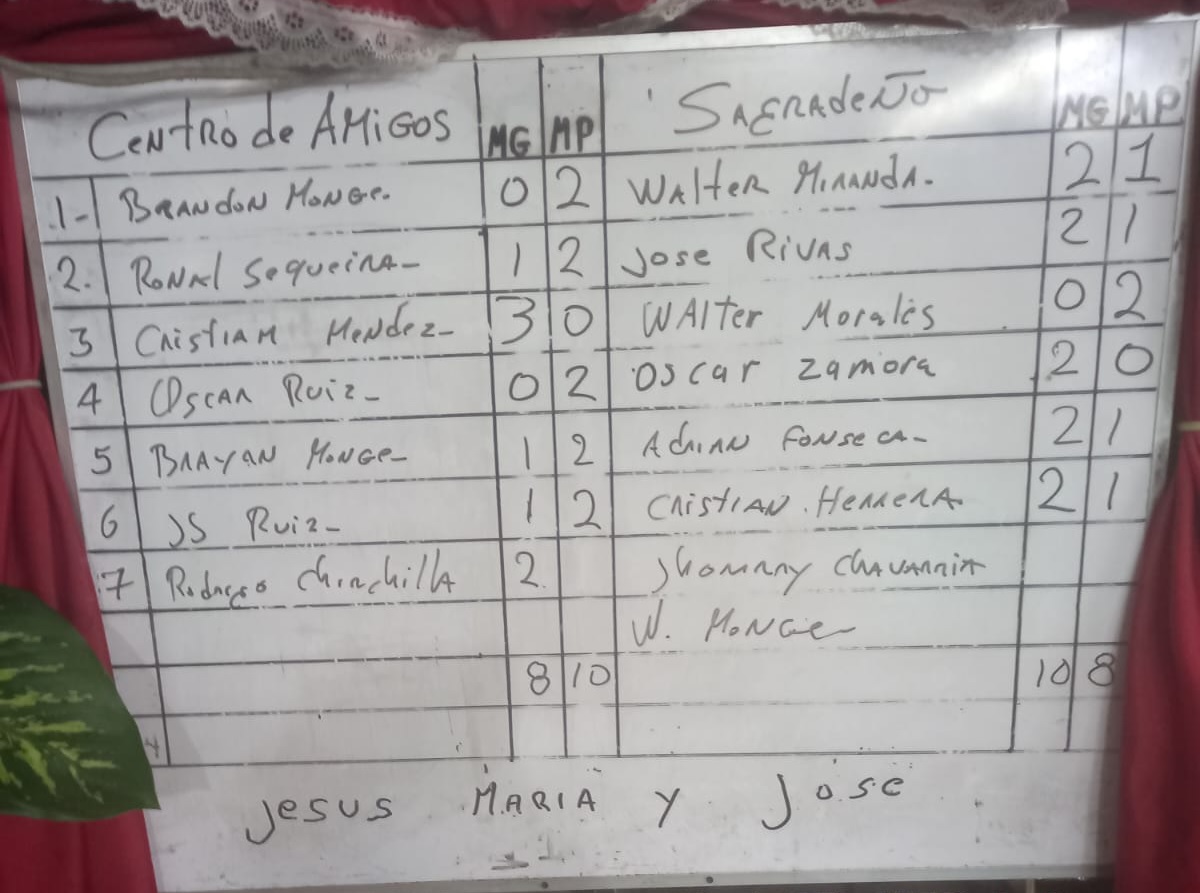 Centro de Amigos MG MP Sagradeño MG MP
1- Brandon Monge. 0 2 Walter Miranda. 2 1
2. Ronal Sequeira- 1 2 Jose Rivas 2 1
3 Cristiam Mendez- 3 0 Walter Morales 0 2
4 Oscar Ruiz- 0 2 Oscar Zamora 2 0
5 Brayan Monge- 1 2 Adrian Fonseca- 2 1
6 JS Ruiz- 1 2 Cristian. Herrera. 2 1
7 Rodrigo Chinchilla 2 Jhonnny Chavarria
W. Monge
8 10 10 8
Jesus Maria y Jose